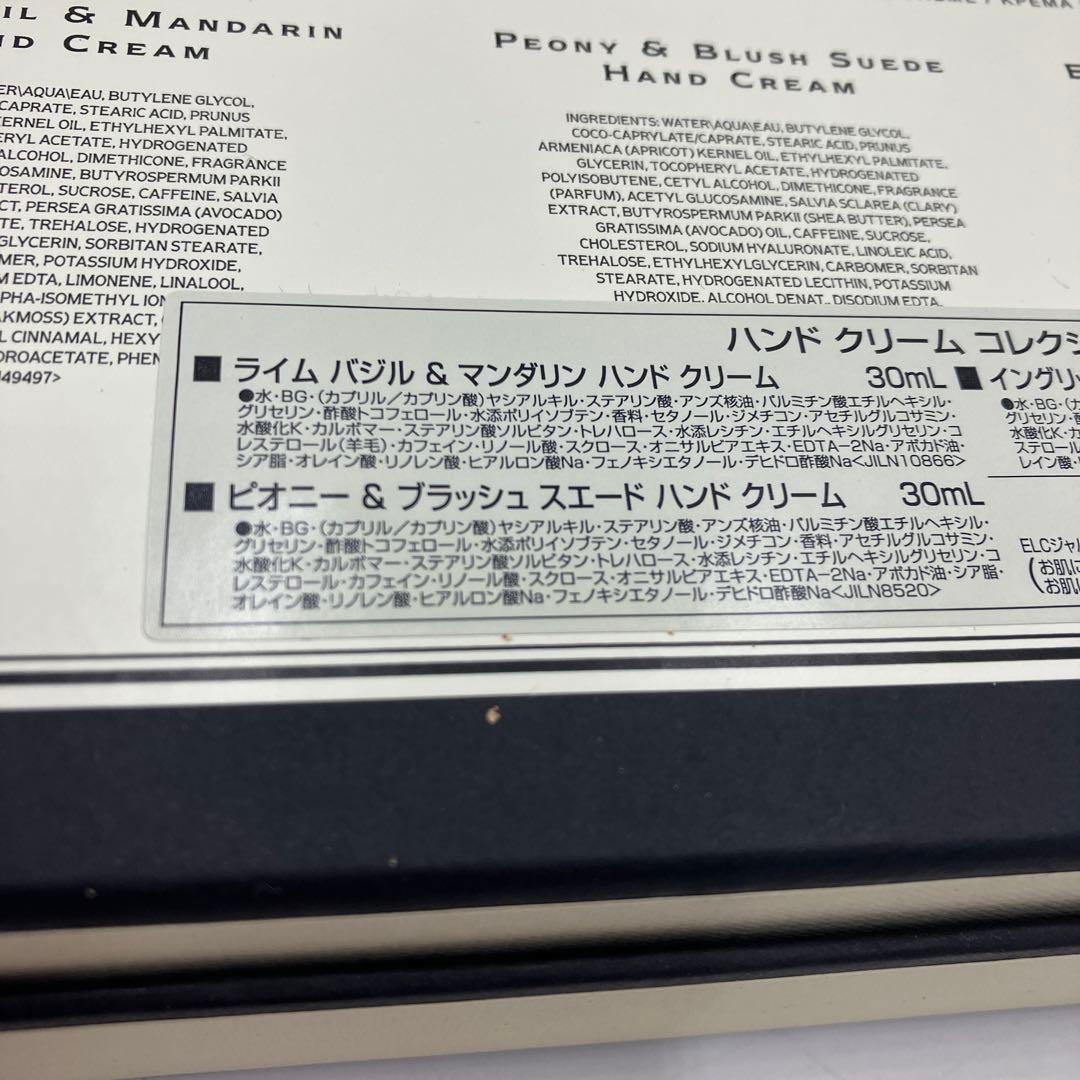 IL & MANDARIN
ND CREAM
ER\AQUA\EAU, BUTYLENE GLYCOL,
CAPRATE, STEARIC ACID, PRUNUS
KERNEL OIL, ETHYLHEXYL PALMITATE,
ERYL ACETATE, HYDROGENATED
ALCOHOL, DIMETHICONE, FRAGRANCE
OSAMINE, BUTYROSPERMUM PARKII
TEROL, SUCROSE, CAFFEINE, SALVIA
CT, PERSEA GRATISSIMA (AVOCADO)
TE, TREHALOSE, HYDROGENATED
GLYCERIN, SORBITAN STEARATE,
MER, POTASSIUM HYDROXIDE,
M EDTA, LIMONENE, LINALOOL,
PHA-ISOMETHYL ION
AKMOSS) EXTRACT,
L CINNAMAL, HEXY
DROACETATE, PHEN
49497>
PEONY & BLUSH SUEDE
HAND CREAM
INGREDIENTS: WATER\AQUA\EAU, BUTYLENE GLYCOL,
COCO-CAPRYLATE/CAPRATE, STEARIC ACID, PRUNUS
ARMENIACA (APRICOT) KERNEL OIL, ETHYLHEXYL PALMITATE,
GLYCERIN, TOCOPHERYL ACETATE, HYDROGENATED
POLYISOBUTENE, CETYL ALCOHOL, DIMETHICONE, FRAGRANCE
(PARFUM), ACETYL GLUCOSAMINE, SALVIA SCLAREA (CLARY)
EXTRACT, BUTYROSPERMUM PARKII (SHEA BUTTER), PERSEA
GRATISSIMA (AVOCADO) OIL, CAFFEINE, SUCROSE,
CHOLESTEROL, SODIUM HYALURONATE, LINOLEIC ACID,
TREHALOSE, ETHYLHEXYLGLYCERIN, CARBOMER, SORBITAN
STEARATE, HYDROGENATED LECITHIN, POTASSIUM
HYDROXIDE, ALCOHOL DENAT., DISODIUM EDTA,
E
ハンド クリーム コレクシ
■ ライム バジル & マンダリン ハンド クリーム 30mL
●水・BG・(カプリル/カプリン酸)ヤシアルキル・ステアリン酸・アンズ核油・パルミチン酸エチルヘキシル・
グリセリン・酢酸トコフェロール・水添ポリイソブテン・香料・セタノール・ジメチコン・アセチルグルコサミン・
水酸化K・カルボマー・ステアリン酸ソルビタン・トレハロース・水添レシチン・エチルヘキシルグリセリン・コ
レステロール(羊毛)・カフェイン・リノール酸・スクロース・オニサルビアエキス・EDTA-2Na・アボカド油・
シア脂・オレイン酸・リノレン酸・ヒアルロン酸Na・フェノキシエタノール・デヒドロ酢酸Na<JILN10866>
■ ピオニー & ブラッシュ スエード ハンド クリーム 30mL
●水・BG・(カプリル/カプリン酸)ヤシアルキル・ステアリン酸・アンズ核油・パルミチン酸エチルヘキシル・
グリセリン・酢酸トコフェロール・水添ポリイソブテン・セタノール・ジメチコン・香料・アセチルグルコサミン・
水酸化K・カルボマー・ステアリン酸ソルビタン・トレハロース・水添レシチン・エチルヘキシルグリセリン・コ
レステロール・カフェイン・リノール酸・スクロース・オニサルビアエキス・EDTA-2Na・アボカド油・シア脂・
オレイン酸・リノレン酸・ヒアルロン酸Na・フェノキシエタノール・デヒドロ酢酸Na<JILN8520>
■ イングリッ
●水・BG・(カ
グリセリン・酢
水酸化K・カ
ステロール
レイン酸・
ELCジャ
(お肌に
お肌